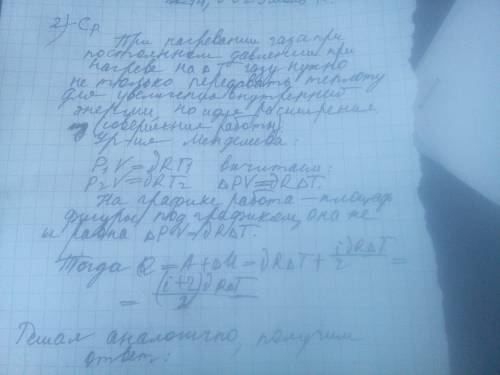 2) - Cp
При нагревании газа при
постоянном давлении при
нагреве на Δ T газу нужно
не только передавать теплоту
для увеличения внутренней
энергии, но и для расширения
(совершение работы).
Ур-ия Менделеева:
P₁V = νRT₁ вычитаем:
P₂V = νRT₂ ΔPV = νRΔT.
На графике работа - площадь
фигуры под графиком, она же
и равна ΔPV = νRΔT.
Тогда Q = A + ΔU = νRΔT + iνRΔT/2 =
= (i+2)νRΔT/2
Решая аналогично, получим
ответ: